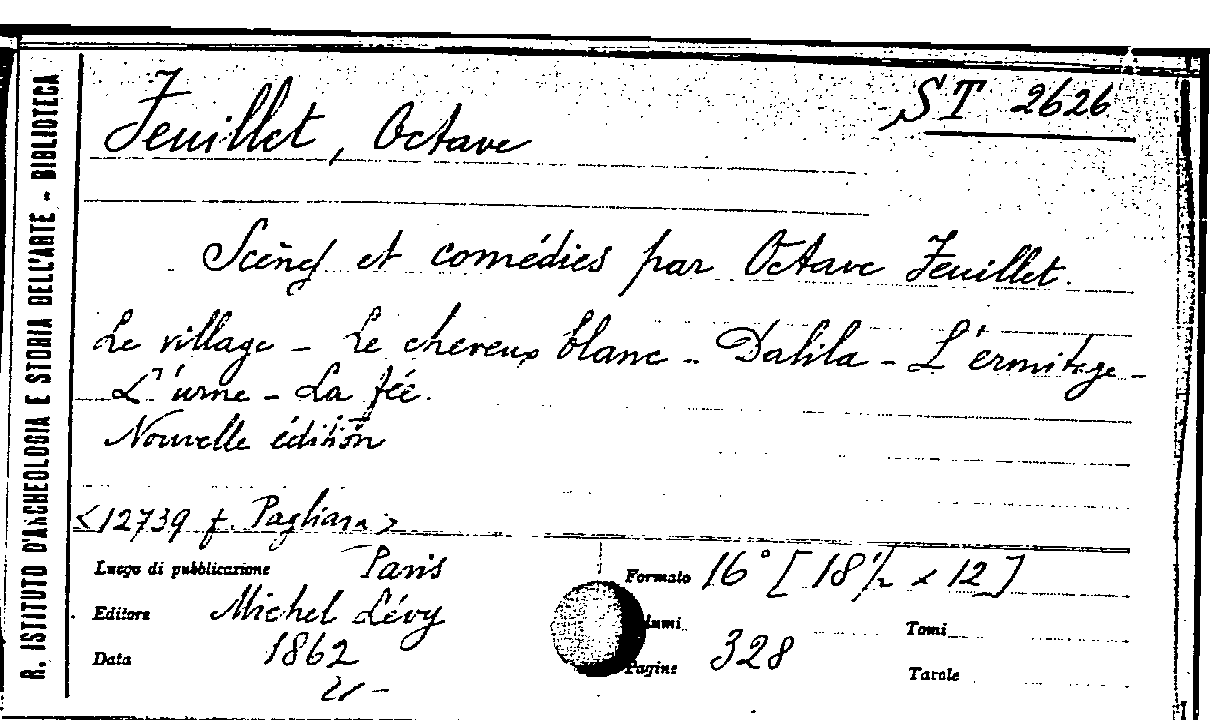 R. ISTITUTO D'ARCHEOLOGIA E STORIA DELL'ARTE - BIBLIOTECA
Feuillet, Octave
ST 2626
Scènes et comédies par Octave Feuillet.
Le village - Le cheveux blanc - Dalila - L'ermitage -
L'urne - La fée.
Nouvelle édition
<12739 f. Pagliara>
Luogo di pubblicazione Paris
Formato 16° [18½ x 12]
Editore Michel Lévy
Tomi
Data 1862
Pagine 328
Tavole